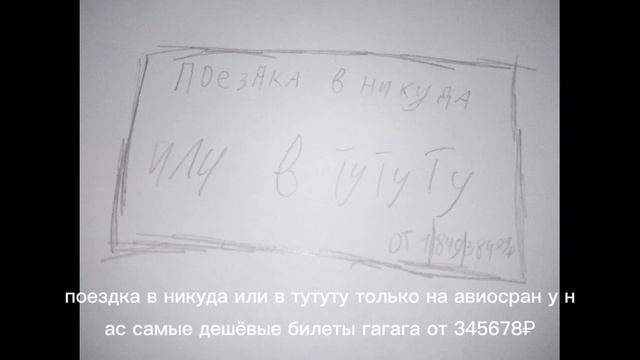 поездка в никуда
или в тутуту
от 1/849/384%
поездка в никуда или в тутуту только на авиосран у н
ас самые дешёвые билеты гагага от 345678₽